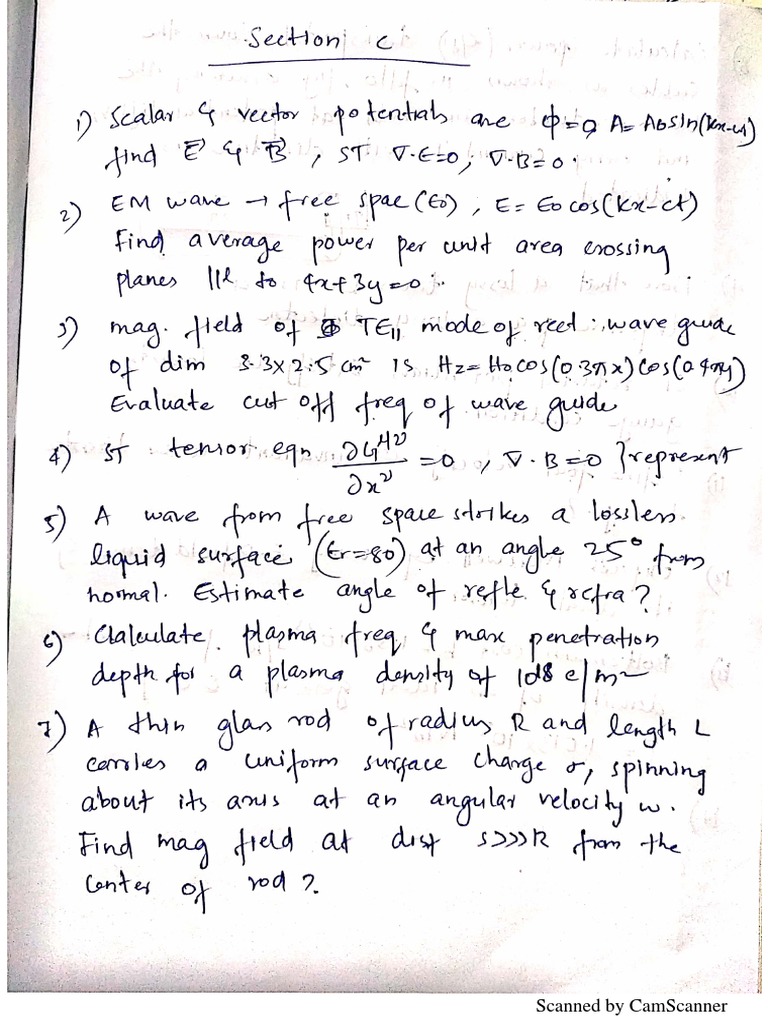 Section C
1) Scalar & vector potentials are φ=0, A= A0sin(kx-wt)
find E⃗ & B⃗, ST ∇·E=0, ∇·B=0.
2) EM wave → free spae (ε0), E= E0 cos(kx-ct)
Find average power per unit area crossing
planes 11l to 4x+3y=0.
3) mag. field of TE11 mode of rect: wave guide
of dim 3.3x2.5 cm² is Hz=H0cos(0.3πx)cos(0.4πy)
Evaluate cut off freq of wave guide
4) ST tensor eqn ∂G^μν/∂x^ν =0, ∇·B=0 } represent
5) A wave from free space strikes a lossless
liquid surface (Er=80) at an angle 25° from
normal. Estimate angle of refle & refra?
6) Calculate plasma freq & max penetration
depth for a plasma density of 1018 e/m²
7) A thin glass rod of radius R and length L
carries a uniform surface charge σ, spinning
about its axis at an angular velocity w.
Find mag field at dist s>>>R from the
center of rod?
Scanned by CamScanner